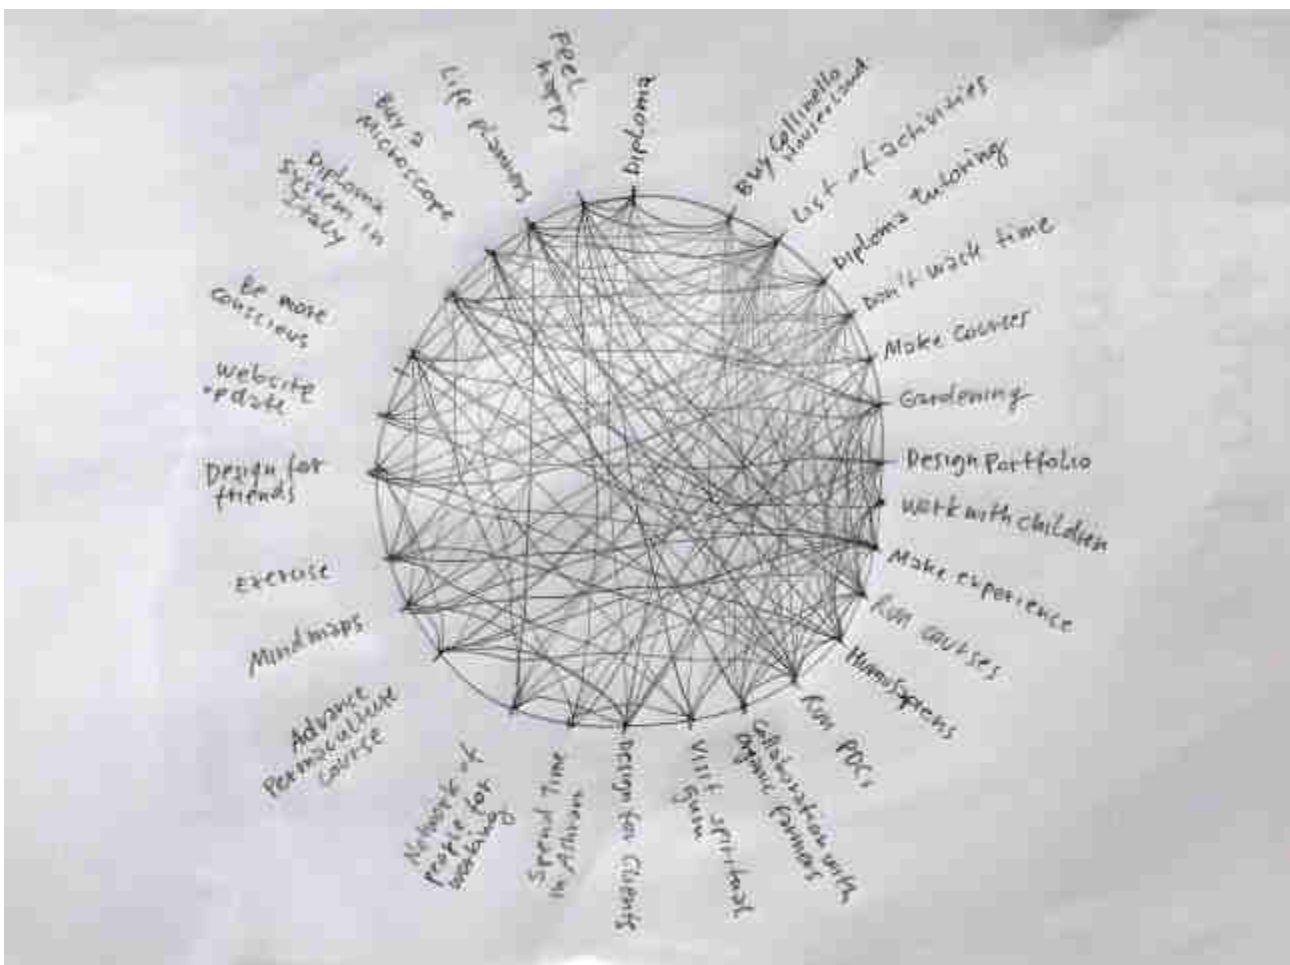 Feel
happy
Diploma
Buy Collinello
House + Land
List of activities
Diploma tutoring
Don't wast time
Make Courses
Gardening
Design Portfolio
Work with children
Make experience
Run courses
HumuSapiens
Run PDCs
Collaboration with
organic farmers
Visit spiritual
guru
Design for Clients
Spend Time
in Ashram
Network of
people for
working
Advance
Permaculture
Course
Mindmaps
Exercise
Design for
friends
Website
update
Be more
conscious
Diploma
system in
Italy
Buy a
Microscope
Life planners